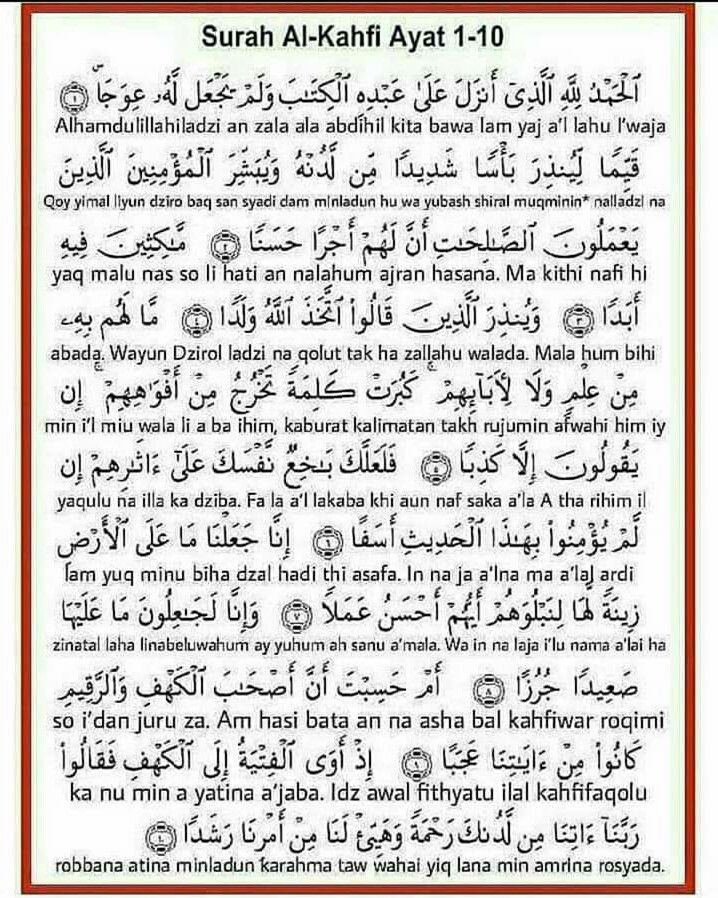 Surah Al-Kahfi Ayat 1-10
الْحَمْدُ لِلَّهِ الَّذِىٓ أَنزَلَ عَلَىٰ عَبْدِهِ الْكِتَٰبَ وَلَمْ يَجْعَل لَّهُۥ عِوَجَاۜ ١
Alhamdulillahiladzi an zala ala abdihil kita bawa lam yaj a'l lahu I'waja
قَيِّمًا لِّيُنذِرَ بَأْسًا شَدِيدًا مِّن لَّدُنْهُ وَيُبَشِّرَ الْمُؤْمِنِينَ الَّذِينَ
Qoy yimal liyun dziro baq san syadi dam minladun hu wa yubash shiral muqminin* nalladzi na
يَعْمَلُونَ الصَّٰلِحَٰتِ أَنَّ لَهُمْ أَجْرًا حَسَنًا ٢ مَّٰكِثِينَ فِيهِ
yaq malu nas so li hati an nalahum ajran hasana. Ma kithi nafi hi
أَبَدًا ٣ وَيُنذِرَ الَّذِينَ قَالُوا۟ اتَّخَذَ اللَّهُ وَلَدًا ٤ مَّا لَهُم بِهِۦ
abada. Wayun Dzirol ladzi na qolut tak ha zallahu walada. Mala hum bihi
مِنْ عِلْمٍ وَلَا لِءَابَآئِهِمْ ۚ كَبُرَتْ كَلِمَةً تَخْرُجُ مِنْ أَفْوَٰهِهِمْ ۚ إِن
min i'l miu wala li a ba ihim, kaburat kalimatan takh rujumin afwahi him iy
يَقُولُونَ إِلَّا كَذِبًا ٥ فَلَعَلَّكَ بَٰخِعٌ نَّفْسَكَ عَلَىٰٓ ءَاثَٰرِهِمْ إِن
yaqulu na illa ka dziba. Fa la a'l lakaba khi aun naf saka a'la A tha rihim il
لَّمْ يُؤْمِنُوا۟ بِهَٰذَا الْحَدِيثِ أَسَفًا ٦ إِنَّا جَعَلْنَا مَا عَلَى الْأَرْضِ
lam yuq minu biha dzal hadi thi asafa. In na ja a'lna ma a'lal ardi
زِينَةً لَّهَا لِنَبْلُوَهُمْ أَيُّهُمْ أَحْسَنُ عَمَلًا ٧ وَإِنَّا لَجَٰعِلُونَ مَا عَلَيْهَا
zinatal laha linabeluwahum ay yuhum ah sanu a'mala. Wa in na laja i'lu nama a'lai ha
صَعِيدًا جُرُزًا ٨ أَمْ حَسِبْتَ أَنَّ أَصْحَٰبَ الْكَهْفِ وَالرَّقِيمِ
so i'dan juru za. Am hasi bata an na asha bal kahfiwar roqimi
كَانُوا۟ مِنْ ءَايَٰتِنَا عَجَبًا ٩ إِذْ أَوَى الْفِتْيَةُ إِلَى الْكَهْفِ فَقَالُوا۟
ka nu min a yatina a'jaba. Idz awal fithyatu ilal kahfifaqolu
رَبَّنَآ ءَاتِنَا مِن لَّدُنكَ رَحْمَةً وَهَيِّئْ لَنَا مِنْ أَمْرِنَا رَشَدًا ١٠
robbana atina minladun karahma taw wahai yiq lana min amrina rosyada.